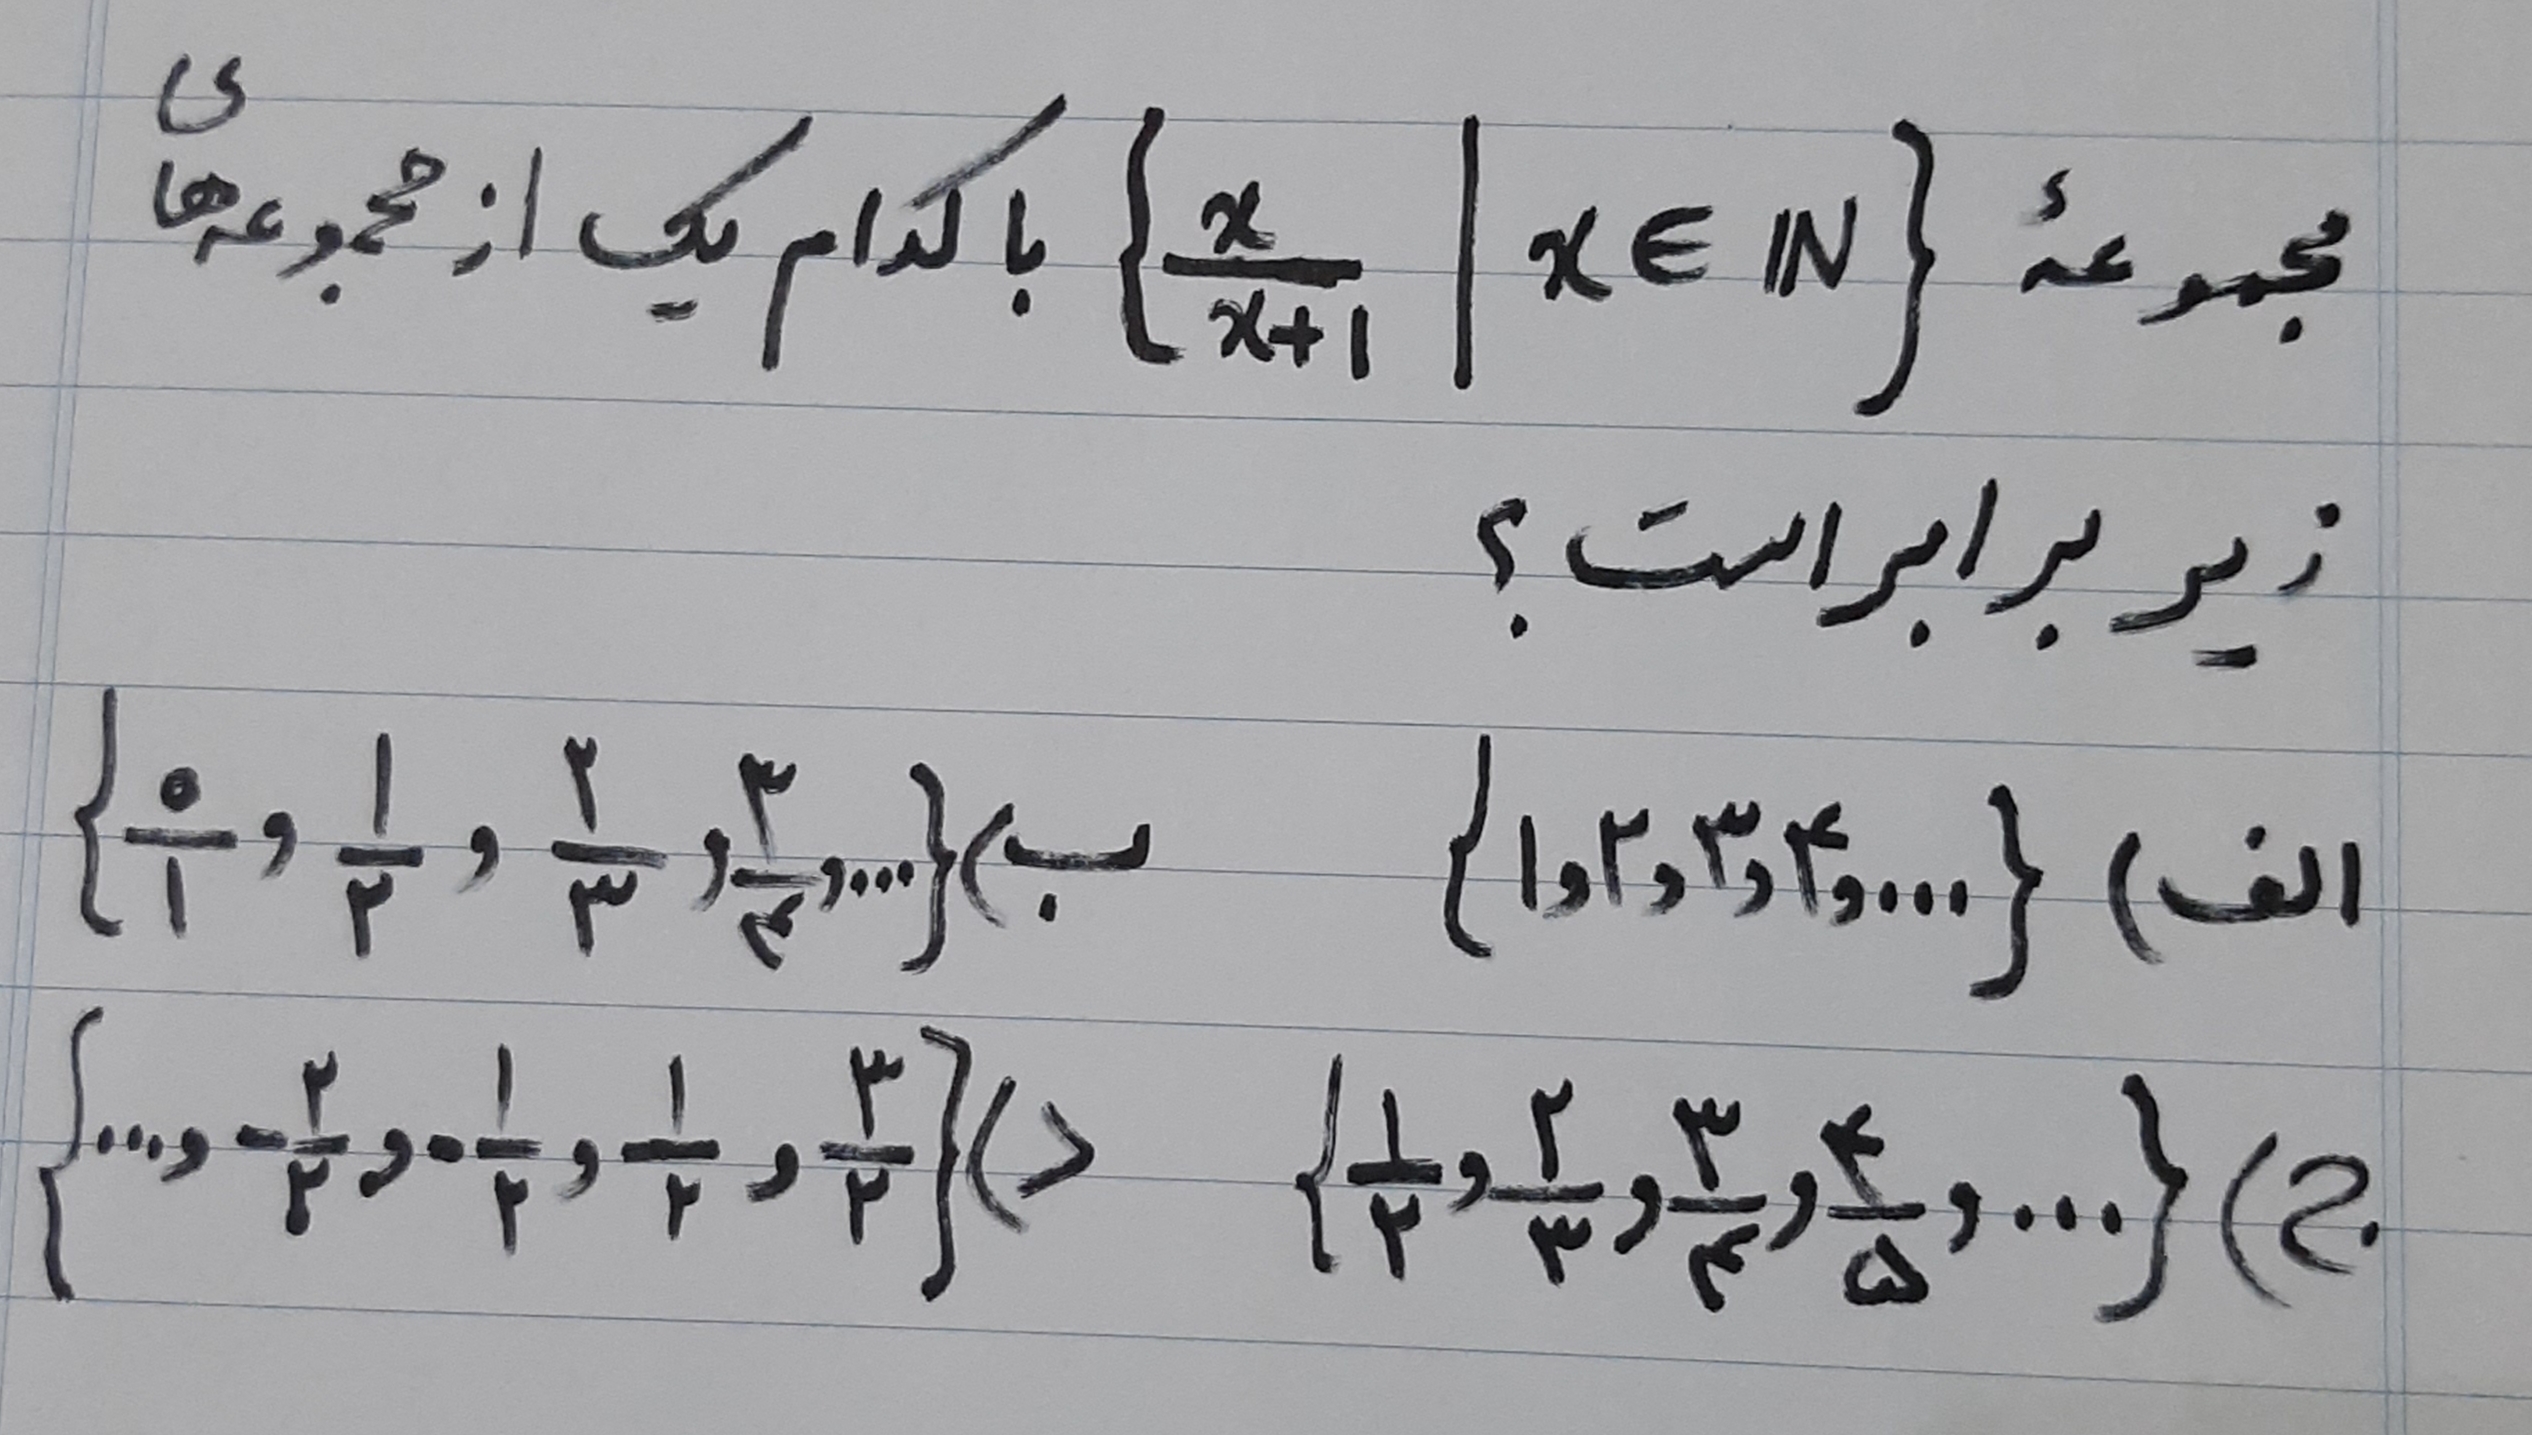 مجموعهٔ {x/(x+1) | x∈ℕ} با کدام یک از مجموعه‌های
زیر برابر است؟
الف) {۱,۲,۳,۴,...} ب) {۰/۱, ۱/۲, ۲/۳, ۳/۴, ...}
ج) {۱/۲, ۲/۳, ۳/۴, ۴/۵, ...} د) {..., -۲/۲, -۱/۲, ۱/۲, ۳/۲}